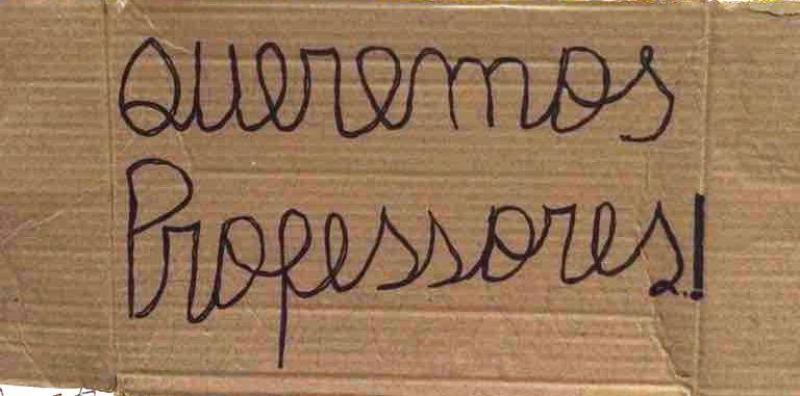 Queremos
Professores!